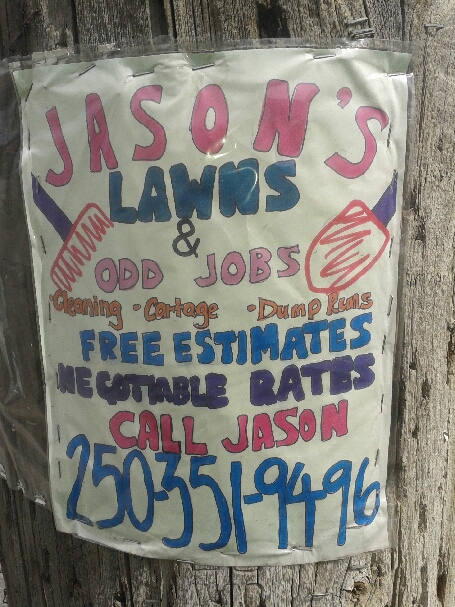 JASON'S
LAWNS
&
ODD JOBS
·Cleaning ·Cartage ·Dump Runs
FREE ESTIMATES
NEGOTIABLE RATES
CALL JASON
250-351-9496